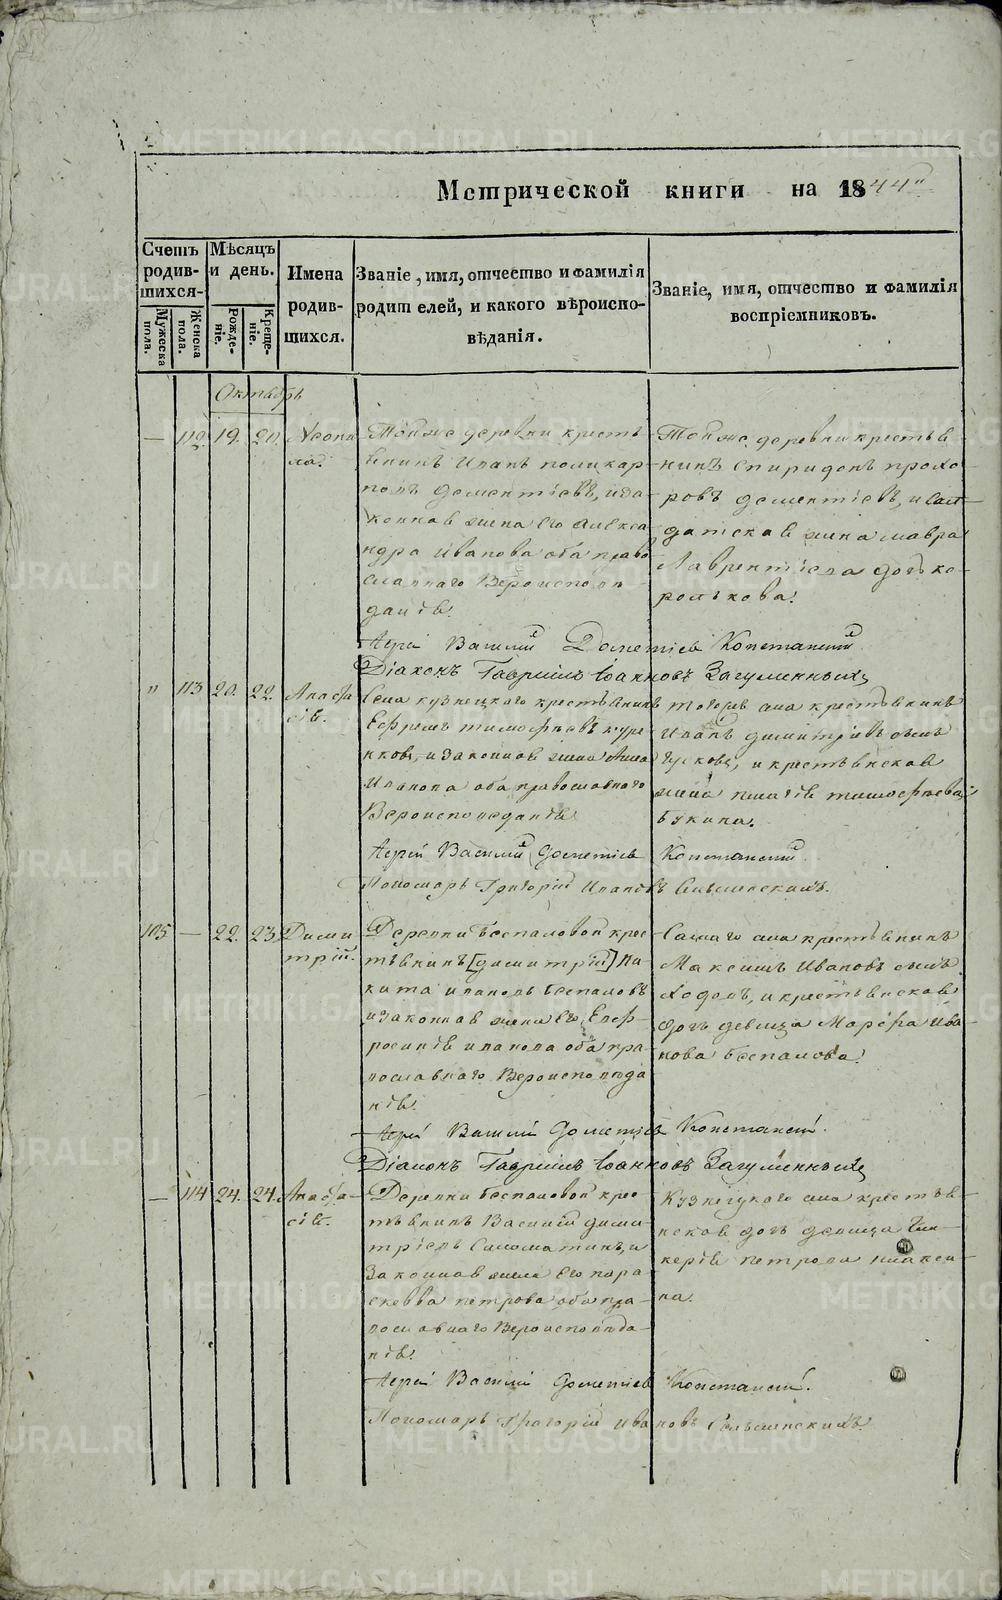 Метрической книги на 1844й
Счетъ родив-шихся.
Мѣсяцъ и день.
Имена родив-шихся.
Званіе, имя, отчество и фамилія
родителей, и какого вѣроиспо-
вѣданія.
Званіе, имя, отчество и фамилія
воспріемниковъ.
Мужеска пола.
Женска пола.
Рожде-ніе.
Креще-ніе.
Октябрь
— 112. 19. 20.
Тойже деревни кресть
янинъ Иванъ поликар
повъ дементіевъ, и за
конная жена его Алекса
ндра Иванова оба право
славнаго Вероисповѣ
данія.
Тойже деревни крестья
нинъ Спиридонъ прохо
ровъ дементіевъ, и сол
датская жена мавра
Лаврентіева
Іерей Василій Дометіевъ Констанскій
Діаконъ Гавріилъ Іоанновъ Загуменныхъ
" 113 20. 22. Анаста
сія.
Села кузнецкаго крестьянинъ
Ефремъ тимофеевъ
и законная жена Анна
Иванова оба православнаго
Вероисповеданія
тогоже села крестьянинъ
Иванъ димитріевъ
и крестьянская
жена тимофеева
Іерей Василій Дометіевъ Констанскій
Пономарь Григорій Ивановъ
105 — 22. 23. Дими
трій.
Деревни Беспаловой крес
тьянинъ [димитрій] Ни
кита ивановъ беспаловъ
и законная жена Его, Евф
росинія иванова оба пра
вославнаго Вероисповѣда
нія.
Самаго села крестьянинъ
Максимъ Ивановъ
и крестьянская
дочь девица Марфа Ива
нова беспалова.
Іерей Василій Дометіевъ Констанскій.
Діаконъ Гавріилъ Іоанновъ Загуменныхъ
— 114 24. 24. Анаста
сія.
Деревни беспаловой крес
тьянинъ Василій дими
тріевъ Саломатинъ, и
законная жена Его пара
скевва петрова оба пра
вославнаго Вероисповѣда
нія.
Кузнецкаго села крестья
нская дочь девица Гли
керія петрова
Іерей Василій Дометіевъ Констанскій.
Пономарь Григорій Ивановъ
METRIKI.GASO-URAL.RU